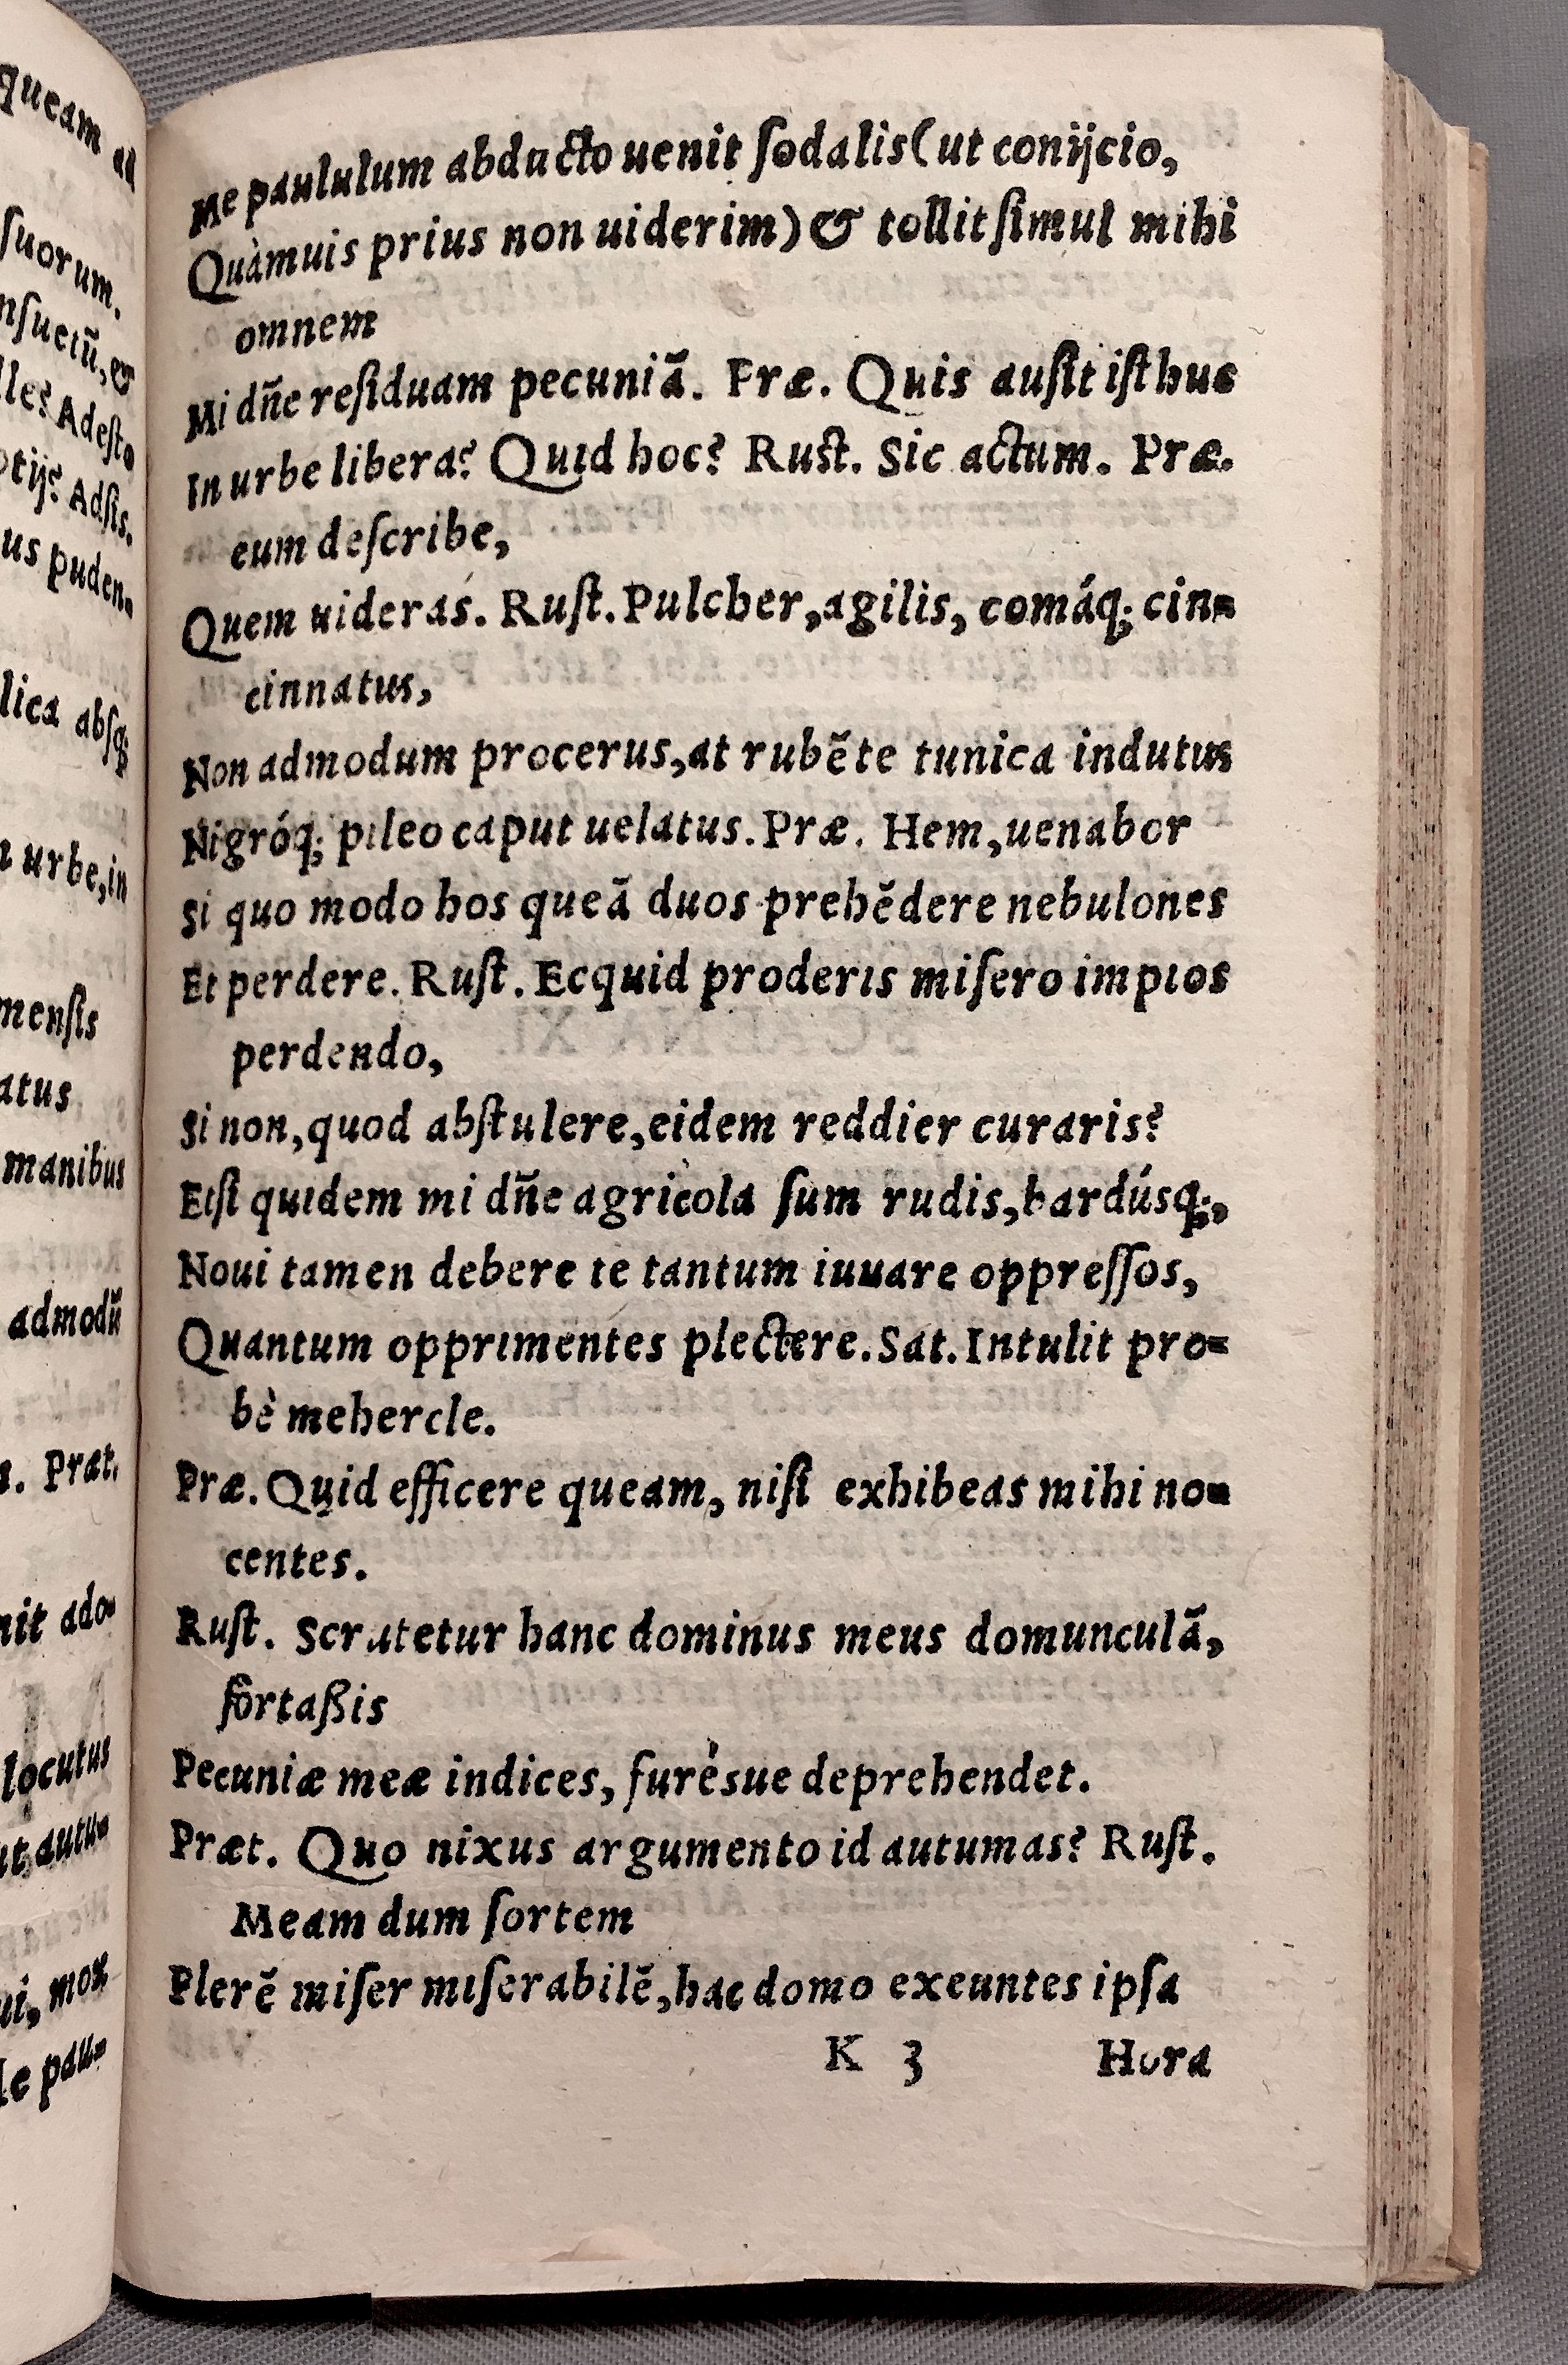 queam ad
suorum.
nsuetũ, &
lle? Adesto
otijs? Adsis.
us puden-
lica absq;
urbe, in
mensis
atus
manibus
admodũ
s. Præt.
nit ado-
locutus
ut, autu-
ui, mox
le pau-
Me paululum abducto uenit sodalis (ut conijcio,
Quàmuis prius non uiderim) & tollit simul mihi
omnem
Mi dñe residuam pecuniã. Præ. Quis ausit isthuc
In urbe libera? Quid hoc? Rust. Sic actum. Præ.
eum describe,
Quem uideras. Rust. Pulcher, agilis, comáq; cin-
cinnatus,
Non admodum procerus, at rubẽte tunica indutus
Nigróq; pileo caput uelatus. Præ. Hem, uenabor
Si quo modo hos queã duos prehẽdere nebulones
Et perdere. Rust. Ecquid proderis misero impios
perdendo,
Si non, quod abstulere, eidem reddier curaris?
Etsi quidem mi dñe agricola sum rudis, bardúsq;,
Noui tamen debere te tantum iuuare oppressos,
Quantum opprimentes plectere. Sat. Intulit pro-
bè mehercle.
Præ. Quid efficere queam, nisi exhibeas mihi no-
centes.
Rust. Scrutetur hanc dominus meus domunculã,
fortaßis
Pecuniæ meæ indices, furésue deprehendet.
Præt. Quo nixus argumento id autumas? Rust.
Meam dum sortem
Flerẽ miser miserabilẽ, hac domo exeuntes ipsa
K 3 Hora